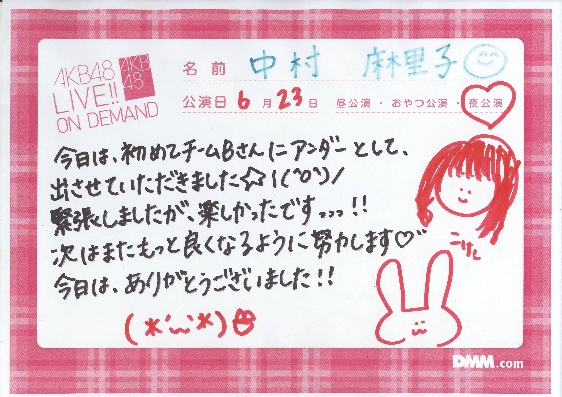 AKB48
LIVE!!
ON DEMAND
AKB
48
名前 中村 麻里子
公演日 6月23日 昼公演・おやつ公演・夜公演
今日は、初めてチームBさんにアンダーとして、
出させていただきました☆\(^o^)/
緊張しましたが、楽しかったですっっっ!!
次はまたもっと良くなるように努力します♡
今日は、ありがとうございました!!
こけし
(*´ω`*)
DMM.com